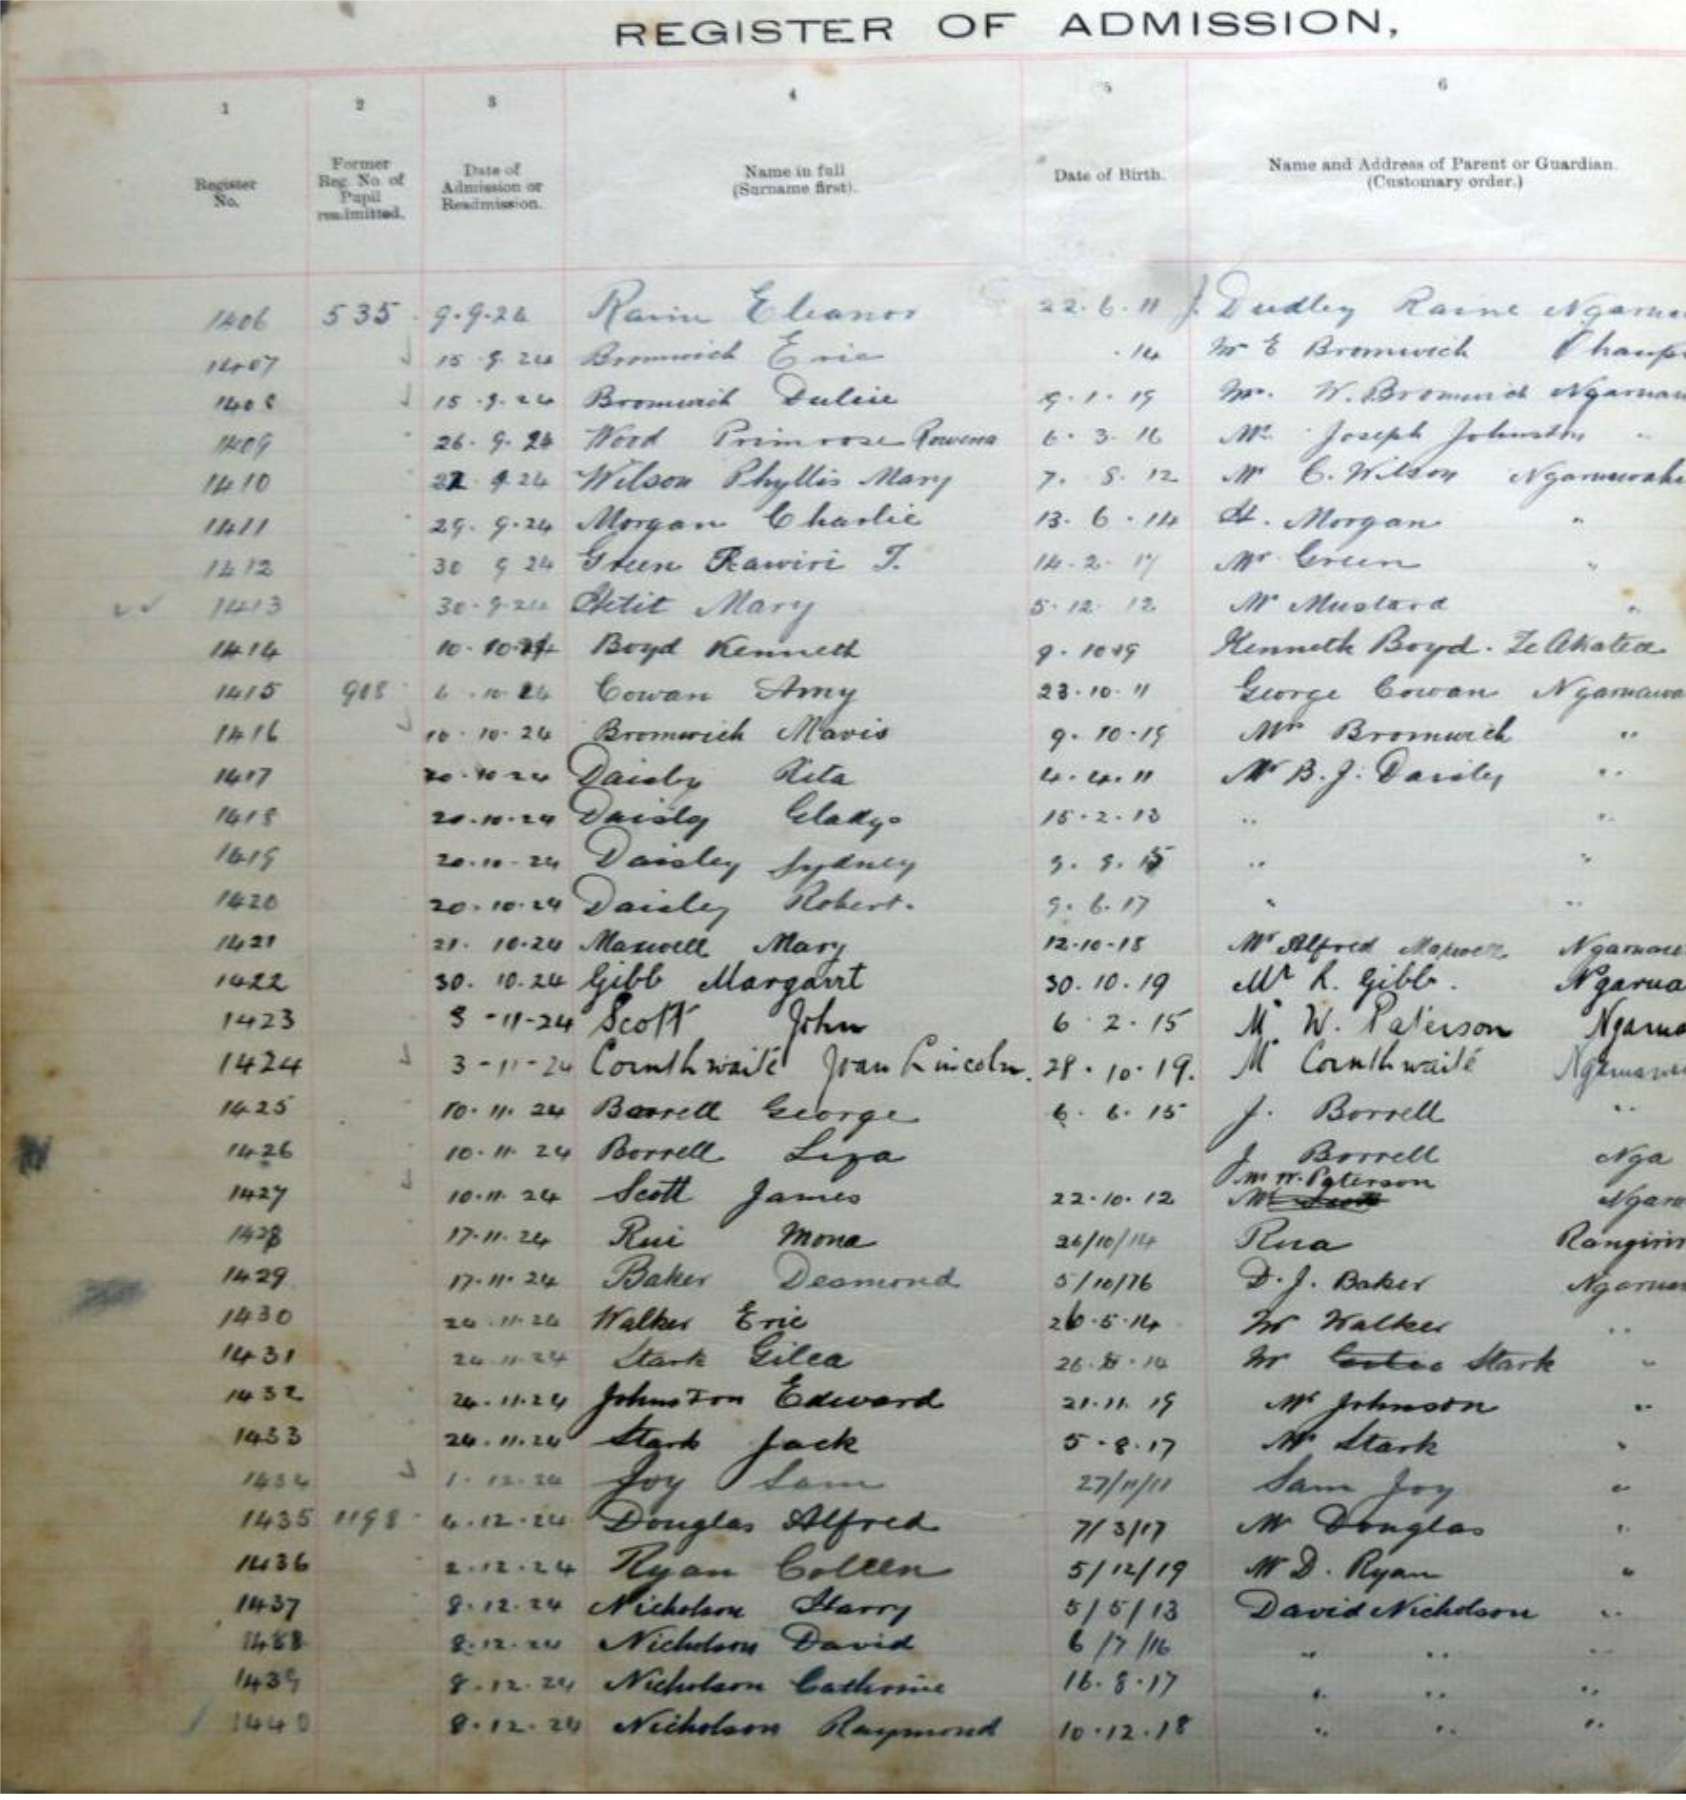 REGISTER OF ADMISSION,
1 2 3 4 5 6
Register No. Former Reg. No. of Pupil readmitted. Date of Admission or Readmission. Name in full (Surname first). Date of Birth. Name and Address of Parent or Guardian. (Customary order.)
1406 535 9.9.24 Raine Eleanor 22.6.11 J. Dudley Raine
1407 15.9.24 Bromwich Eric .14 Mr E Bromwich
1408 15.9.24 Bromwich Dulcie 9.1.19 Mr. W. Bromwich
1409 26.9.24 Wood Primrose Rowena 6.3.16 Mr. Joseph Johnston "
1410 9 24 Wilson Phyllis Mary 7.8.12 Mr C. Wilson
1411 29.9.24 Morgan Charlie 13.6.14 H. Morgan "
1412 30 9 24 Green Rawiri T. 14.2.17 Mr Green "
1413 30.9.24 Mary 5.12.12 Mr Mustard "
1414 10.10.24 Boyd Kenneth 9.10.19 Kenneth Boyd. Te Akatea
1415 908 6.10.24 Cowan Amy 23.10.11 George Cowan
1416 10.10.24 Bromwich Mavis 9.10.19 Mr Bromwich "
1417 20.10.24 Daisley Rita 4.4.11 Mr B.J. Daisley "
1418 20.10.24 Daisley Gladys 15.2.13 " "
1419 20.10.24 Daisley Sydney 9.9.15 " "
1420 20.10.24 Daisley Robert. 9.6.17 " "
1421 21.10.24 Maxwell Mary 12.10.18 Mr Alfred Maxwell
1422 30.10.24 Gibb Margaret 30.10.19 Mr R. Gibb.
1423 3-11-24 Scott John 6.2.15 Mr W. Paterson
1424 3-11-24 Cornthwaite Joan Lincoln. 28.10.19. Mr Cornthwaite
1425 10.11.24 Borrell George 6.6.15 J. Borrell "
1426 10.11.24 Borrell Liza J Borrell Nga
Mr W. Paterson
1427 10.11.24 Scott James 22.10.12 Mr Scott
1428 17.11.24 Rui Mona 26/10/14 Rua
1429 17.11.24 Baker Desmond 5/10/16 D.J. Baker
1430 24.11.24 Walker Eric 26.5.14 Mr Walker "
1431 24.11.24 Stark Gilea 26. .14 Mr Stark "
1432 24.11.24 Johnston Edward 21.11.19 Mr Johnson "
1433 24.11.24 Stark Jack 5.8.17 Mr Stark "
1434 1.12.24 Joy Sam 27/11/11 Sam Joy "
1435 1198 4.12.24 Douglas Alfred 7/3/17 Mr Douglas "
1436 2.12.24 Ryan Colleen 5/12/19 Mr D. Ryan "
1437 8.12.24 Nicholson Harry 5/5/13 David Nicholson "
1438 8.12.24 Nicholson David 6/7/16 " " "
1439 8.12.24 Nicholson Catherine 16.8.17 " " "
1440 8.12.24 Nicholson Raymond 10.12.18 " " "